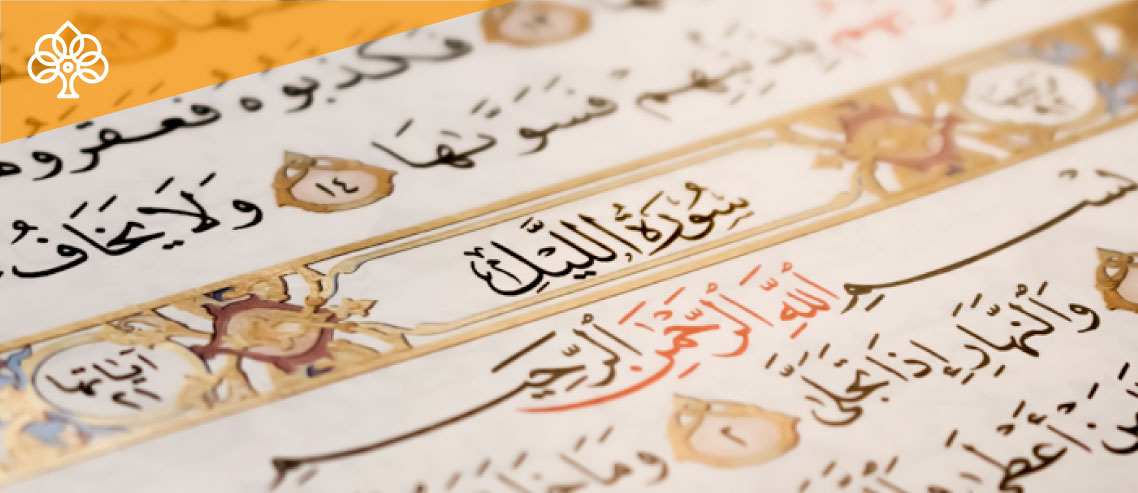 فَكَذَّبُوهُ فَعَقَرُوهَا
بِذَنۢبِهِمْ فَسَوَّىٰهَا ١٤ وَلَا يَخَافُ
سُورَةُ ٱلَّيْلِ آيَاتُهَا ٢١
بِسْمِ ٱللَّهِ ٱلرَّحْمَٰنِ ٱلرَّحِيمِ
وَٱلنَّهَارِ إِذَا تَجَلَّىٰ ٢ وَمَا
مَنْ أَعْطَىٰ